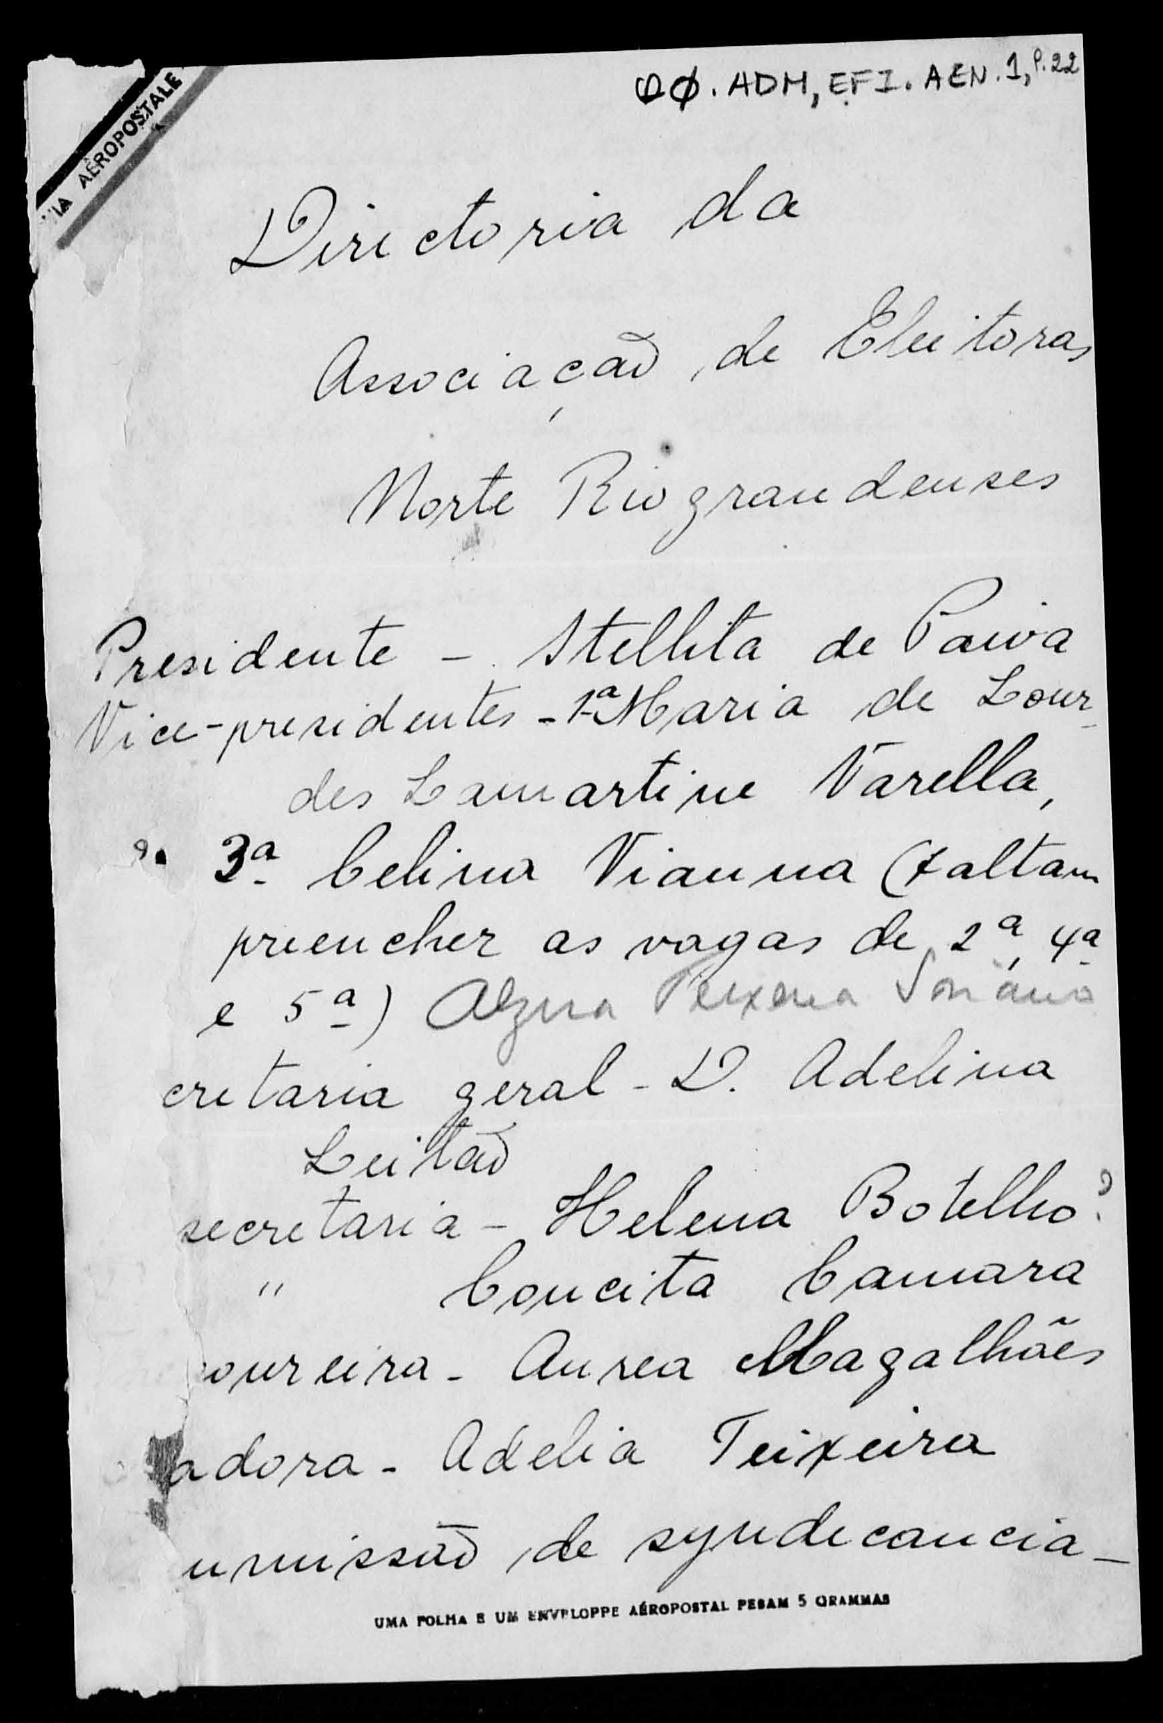 QØ.ADM,EFI.AEN.1,P.22
VIA AÉROPOSTALE
Directoria da
Associação de Eleitoras
Norte Riograndenses
Presidente - Stellita de Paiva
Vice-presidentes - 1ª Maria de Lour-
des Lamartine Varella,
3ª Celina Vianna (faltam
preencher as vagas de 2ª, 4ª
e 5ª) Alzira Teixeira Soriano
cretaria geral - D. Adelina
Leitão
secretaria - Helena Botelho?
" Concita Camara
oureira - Aurea Magalhães
adora - Adelia Teixeira
missão de syndecancia -
UMA FOLHA E UM ENVELOPPE AÉROPOSTAL PESAM 5 GRAMMAS